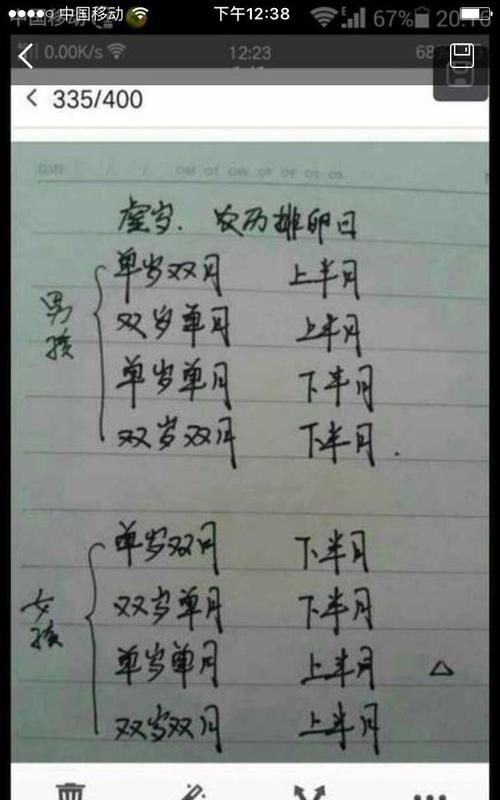 中国移动 下午12:38 67% 20:16
0.00K/s 12:23 68
335/400
DATE / /
虚岁. 农历排卵日
男孩
单岁双月 上半月
双岁单月 上半月
单岁单月 下半月
双岁双月 下半月.
女孩
单岁双月 下半月
双岁单月 下半月
单岁单月 上半月 △
双岁双月 上半月